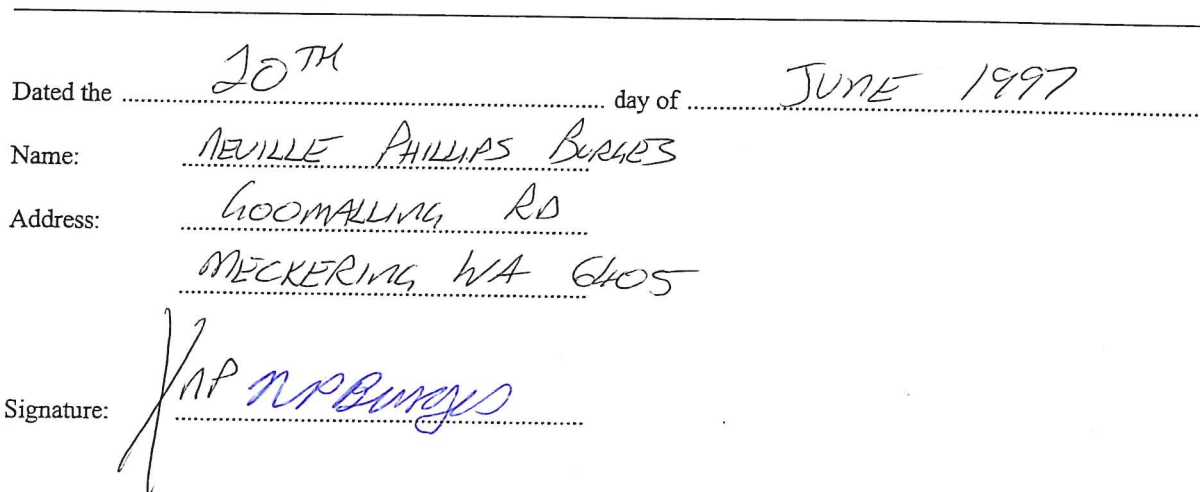 Dated the 20TH day of JUNE 1997
Name: NEVILLE PHILLIPS BURGES
Address: GOOMALLING RD
MECKERING WA 6405
Signature: NP NPBurges